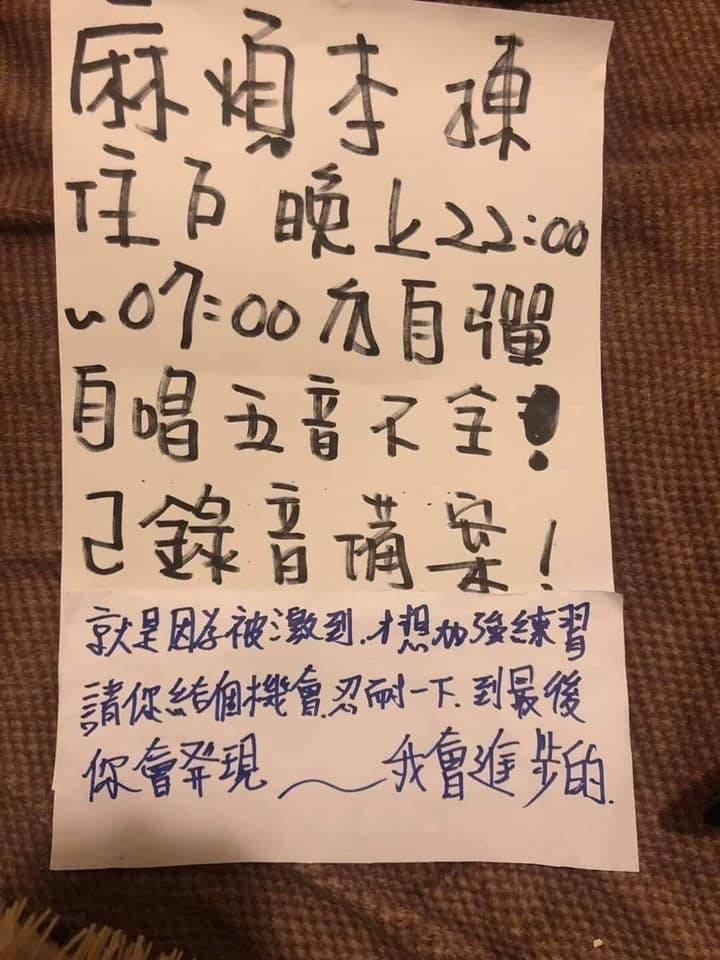 麻煩本棟
住戶晚上22:00
~07:00勿自彈
自唱五音不全!
已錄音備案!
就是因為被激到.才想加強練習
請你給個機會.忍耐一下.到最後
你會發現～我會進步的.